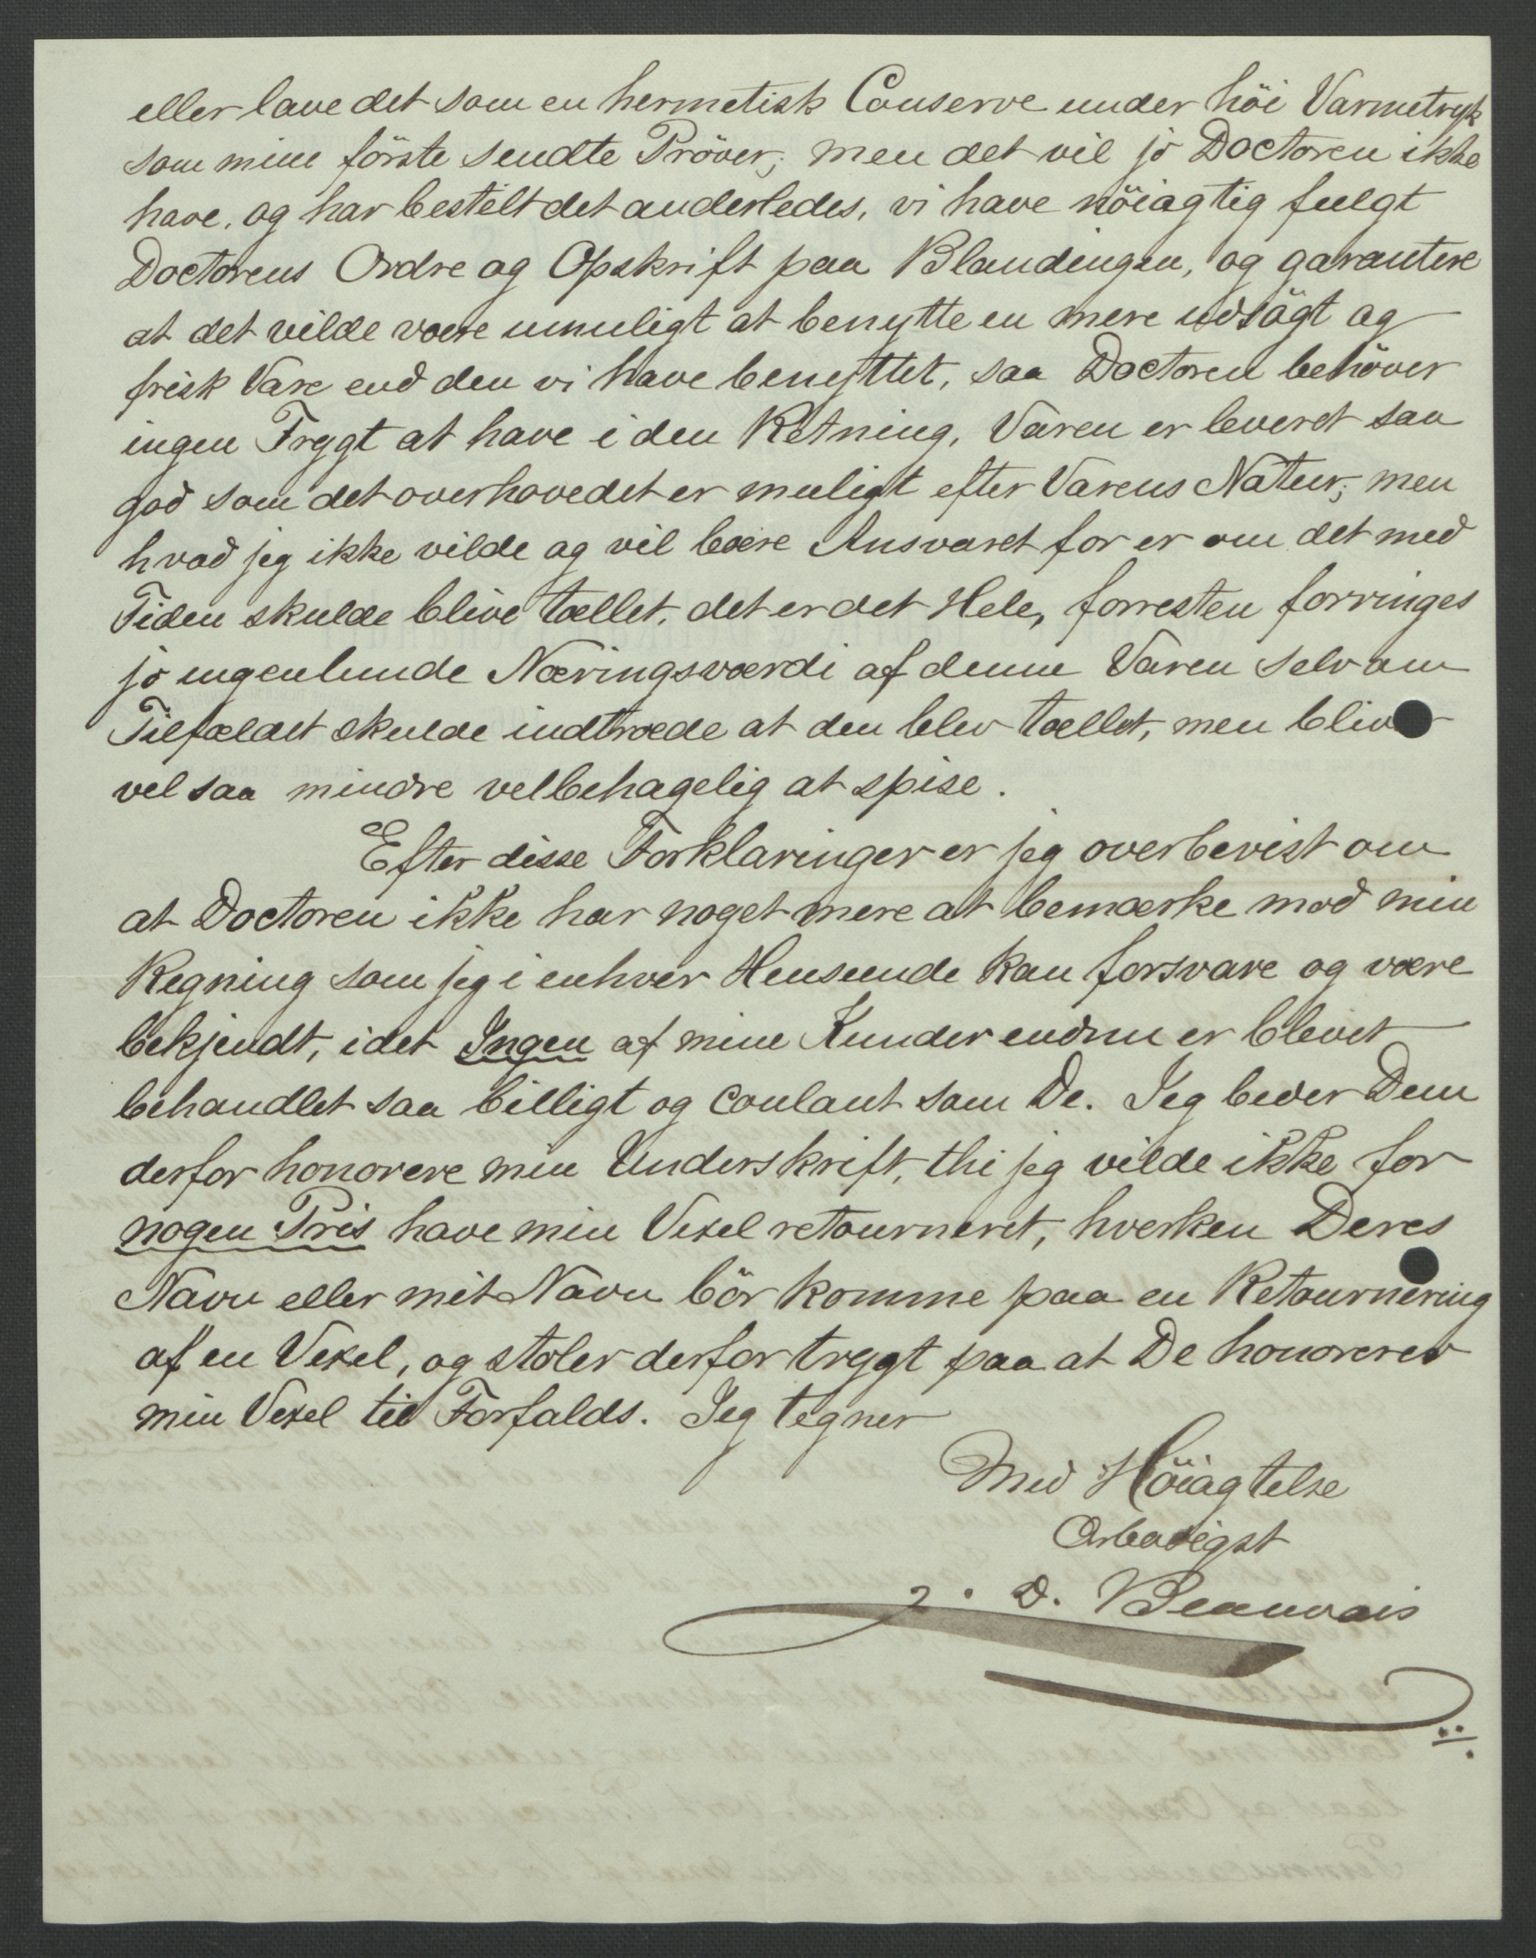 eller lave det som en hermetisk Conserve under höi Varmetryk
som mine förste sendte Pröver; men det vil jo Doctoren ikke
have, og har bestilt det anderledes, vi have nöiagtig fulgt
Doctorens Ordre og Opskrift paa Blandingen, og garantere
at det vilde være umuligt at benytte en mere udsögt og
frisk Vare end den vi have benyttet, saa Doctoren behöver
ingen Frygt at have i den Retning, Varen er leveret saa
god som det overhovedet er muligt efter Varens Natur; men
hvad jeg ikke vilde og vil bære Ansvaret for er om det med
Tiden skulde blive tællet, det er det Hele, forresten forringes
jo ingenlunde Næringsværdi af denne Varen selv om
Tilfældet skulde indtræde at den blev tællet, men bliver
vel saa mindre velbehagelig at spise.
Efter disse Forklaringer er jeg overbevist om
at Doctoren ikke har noget mere at bemærke mod min
Regning som jeg i enhver Henseende kan forsvare og være
bekjendt, idet Ingen af mine Kunder endnu er blevet
behandlet saa billigt og coulant som De. Jeg beder Dem
derfor honorere min Underskrift, thi jeg vilde ikke for
nogen Pris have min Vexel retourneret, hverken Deres
Navn eller mit Navn bör komme paa en Retournering
af en Vexel, og stoler derfor trygt paa at De honorerer
min Vexel til Forfalds. Jeg tegner
Med Höiagtelse
Ærbødigst
D. Beauvais